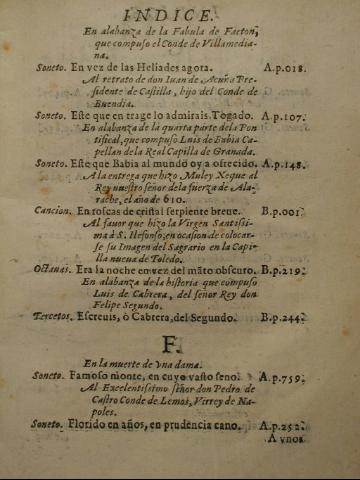 INDICE.
En alabanza de la Fabula de Faeton,
que compuso el Conde de Villamedia-
na.
Soneto. En vez de las Heliades agora. A.p.018.
Al retrato de don Iuan de Acuña Pre-
sidente de Castilla, hijo del Conde de
Buendia.
Soneto. Este que en trage lo admirais. Togado. A.p.107.
En alabanza de la quarta parte dela Pon
tifical, que compuso Luis de Babia Ca-
pellan de la Real Capilla de Granada.
Soneto. Este que Babia al mundo oy a ofrecido. A.p.148.
A la entrega que hizo Muley Xeque al
Rey nuestro señor de la fuerza de Ala-
rache, el año de 610.
Cancion. En roscas de cristal serpiente breue. B.p.001.
Al fauor que hizo la Virgen Santissi-
ma à S. Ilefonso, en ocasion de colocar-
se su Imagen del Sagrario en la Capi-
lla nueua de Toledo.
Octauas. Era la noche en vez del mãto obscuro. B.p.219.
En alabanza de la historia que compuso
Luis de Cabrera, del señor Rey don
Felipe Segundo.
Tercetos. Escreuis, ò Cabrera, del Segundo. B.p.244.
F.
En la muerte de vna dama.
Soneto. Famoso monte, en cuyo vasto seno. A.p.759.
Al Excelentissimo señor don Pedro de
Castro Conde de Lemos, Virrey de Na-
poles.
Soneto. Florido en años, en prudencia cano. A.p.252.
A vnos